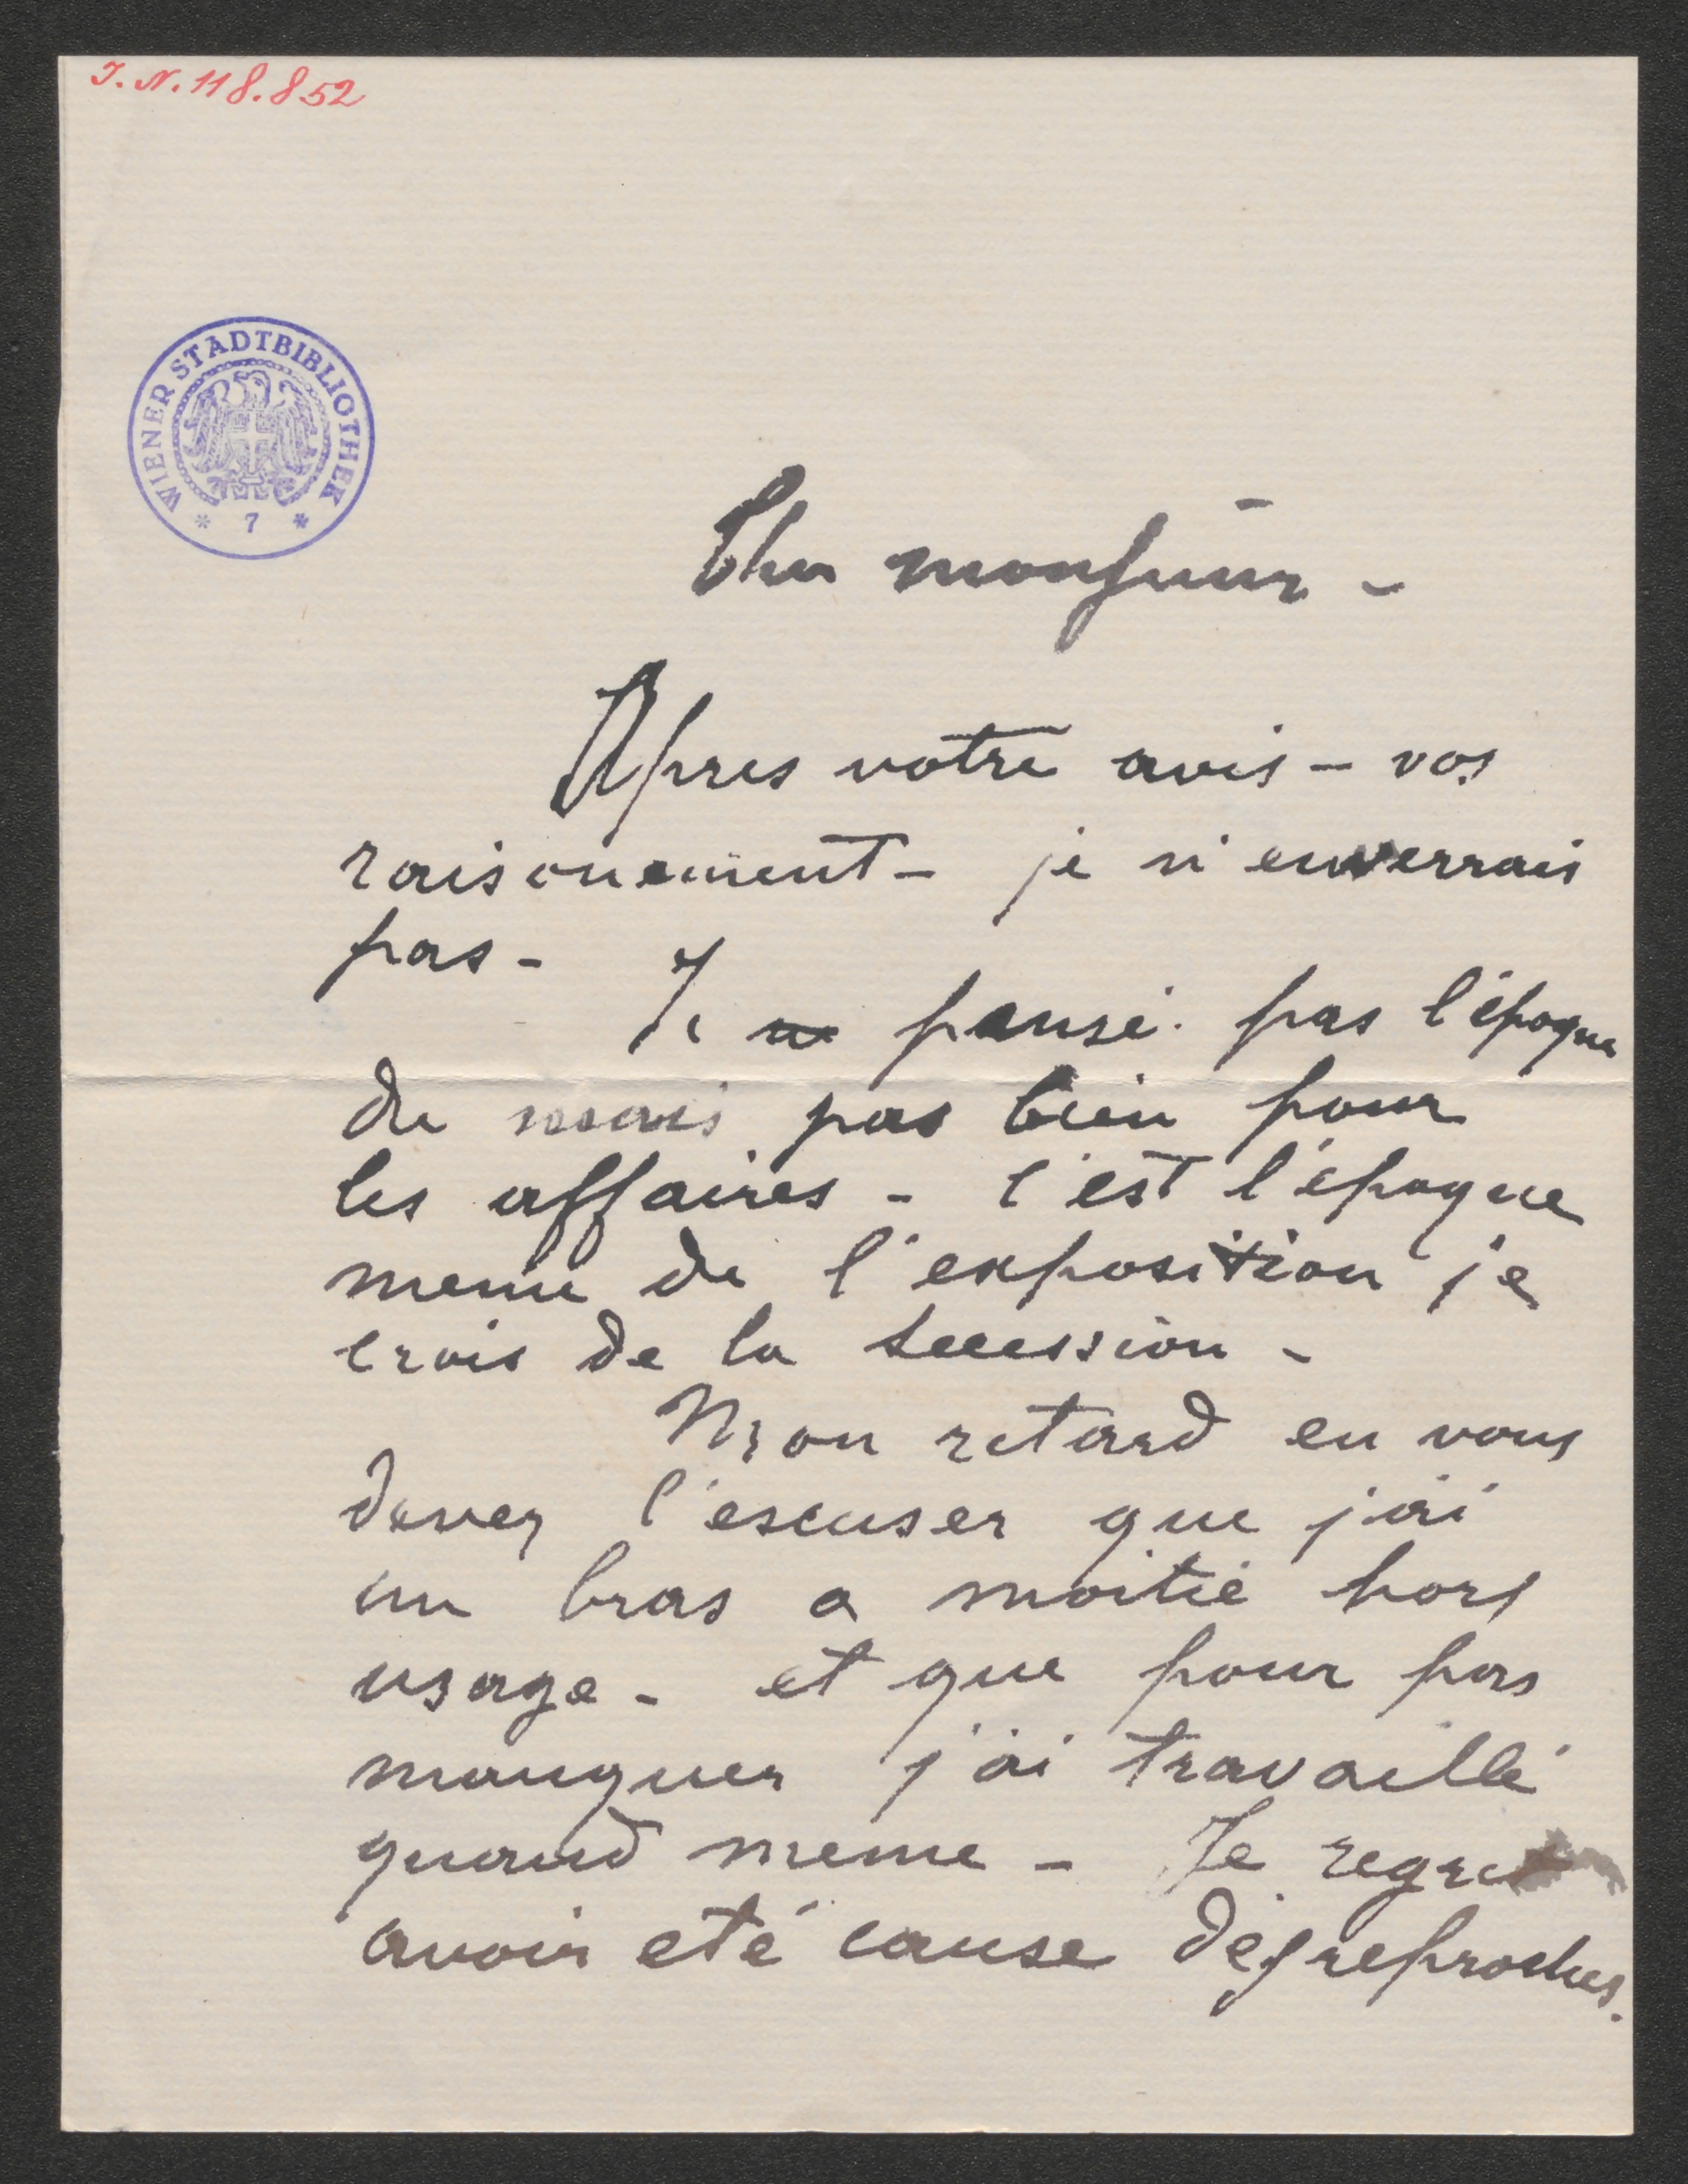 I. N. 118.852
WIENER STADTBIBLIOTHEK
* 7 *
Cher monsieur -
Apres votre avis - vos
raisonement - je n'enverrais
pas -
Je pensé pas l'époque
du mois pas bien pour
les affaires - c'est l'époque
meme de l'exposition je
crois de la Secession -
Mon retard en vous
devez l'escuser que j'ai
un bras a moitié hors
usage - et que pour pas
manquer j'ai travaillé
quand meme - Je regret
avoir eté cause des reproches.